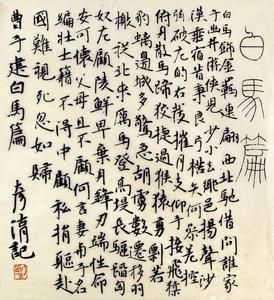 白馬篇
白馬飾金羈連翩西北馳借問誰家
子幽并游俠兒少小去鄉邑揚聲沙
漠垂宿昔秉良弓楛矢何參差控
弦破左的右發摧月支仰手接飛猱
俯身散馬蹄狡捷過猴猿勇剽若
豹螭邊城多驚急胡虜數遷移羽
檄從北來厲馬登高堤長驅蹈匈
奴左顧陵鮮卑棄身鋒刃端性命
安可懷父母且不顧何言妻與子名
編壯士籍不得中顧私捐軀赴
國難視死忽如歸
曹子建白馬篇 彥清記